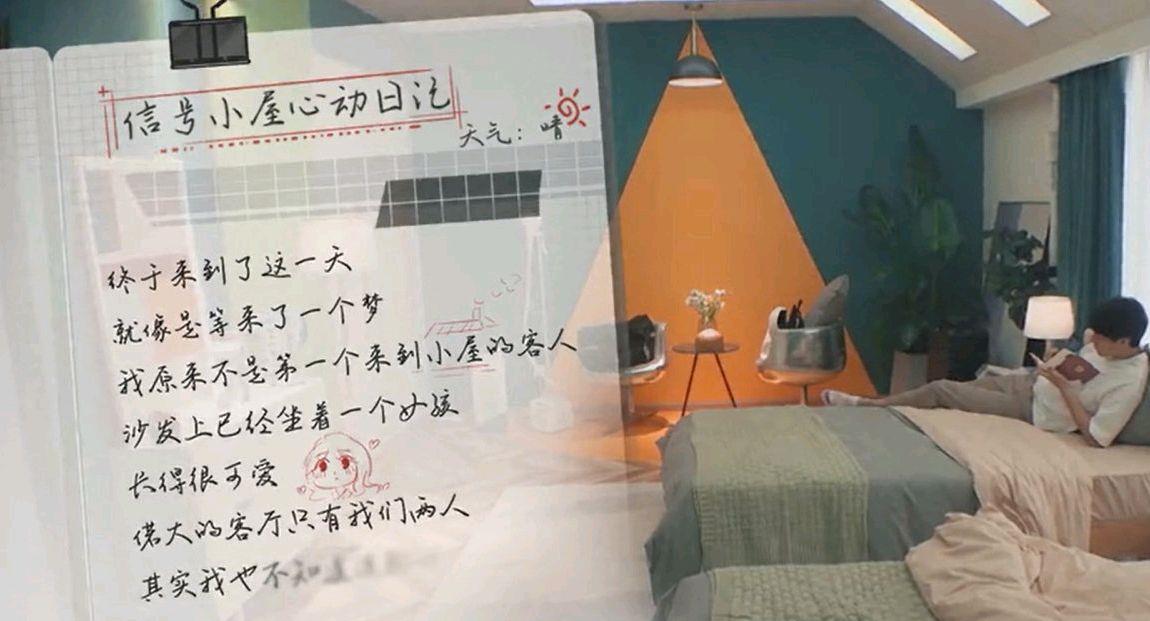 信号小屋心动日记
天气：晴
终于来到了这一天
就像是等来了一个梦
我原来不是第一个来到小屋的客人
沙发上已经坐着一个女孩
长得很可爱
偌大的客厅只有我们两人
其实我也不知